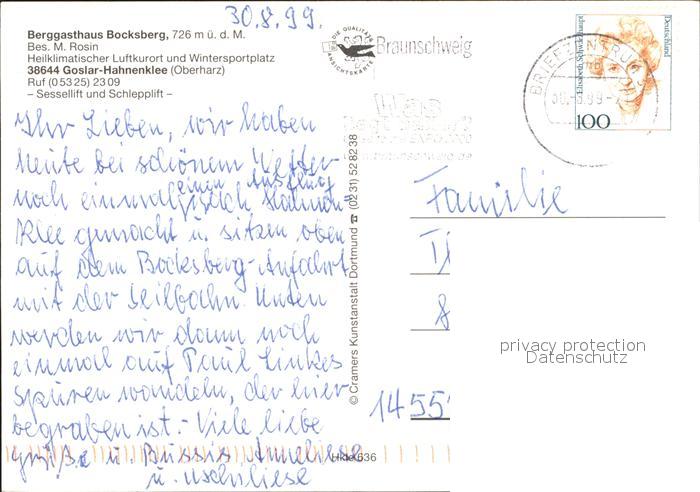 30.8.99.
Berggasthaus Bocksberg, 726 m ü. d. M.
Bes. M. Rosin
Heilklimatischer Luftkurort und Wintersportplatz
38644 Goslar-Hahnenklee (Oberharz)
Ruf (0 53 25) 23 09
– Sessellift und Schlepplift –
Ihr Lieben, wir haben
heute bei schönem Wetter
noch einmal einen Ausflug
nach Hahnen-
klee gemacht u. sitzen oben
auf dem Bocksberg-Anfahrt
mit der Seilbahn. Unten
werden wir dann noch
einmal auf Paul Linkes
Spuren wandeln, der hier
begraben ist. - Viele liebe
Grüße u. Bussis Anneliese
u. Uschiliese
© Cramers Kunstanstalt Dortmund ☎ (02 31) 52 82 38
Hkle 636
DIE QUALITÄTS
ANSICHTSKARTE
Braunschweig
Was
BRIEFZENTRUM
30.-8.99
Deutschland
Elisabeth Schwarzhaupt
100
Familie
1455
privacy protection
Datenschutz